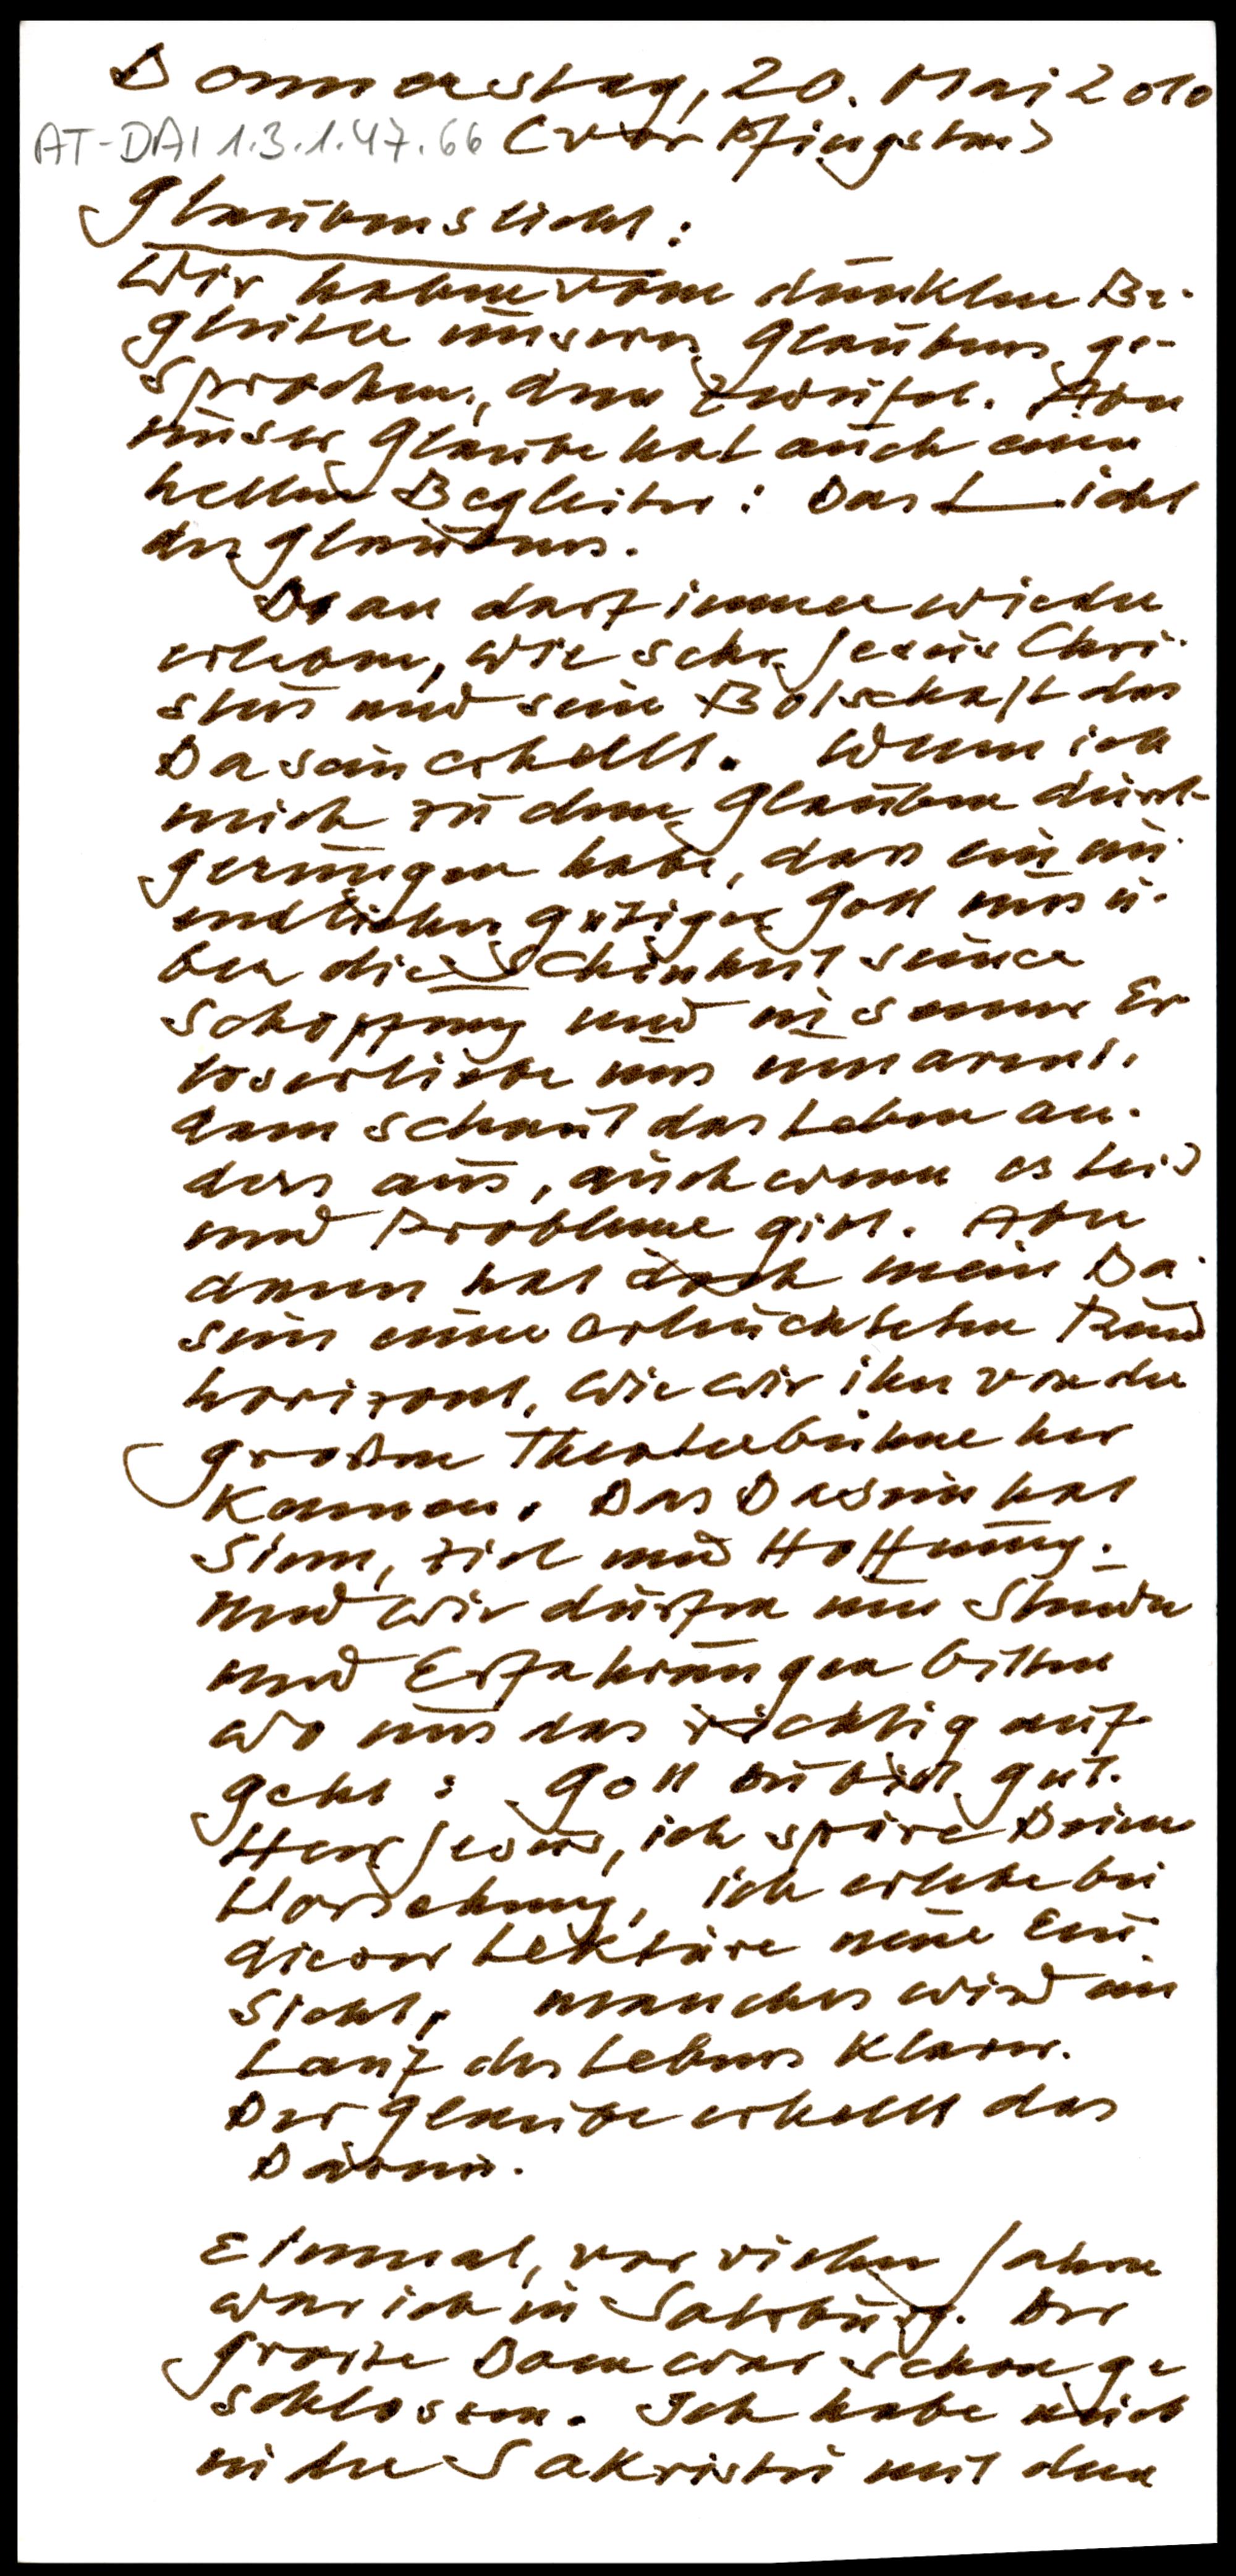 Donnerstag, 20. Mai 2010
AT-DAI 1.3.1.47.66 (vor Pfingsten)
Glaubenslicht:
Wir haben vom dunklen Be-
gleiter unseres Glaubens ge-
sprochen, dem Zweifel. Aber
unser Glaube hat auch einen
hellen Begleiter: Das Licht
des Glaubens.
Man darf immer wieder
erleben, wie sehr Jesus Chri-
stus und seine Botschaft das
Dasein erhellt. Wenn ich
mich zu dem Glauben durch-
gerungen habe, dass ein un-
endlicher gütiger Gott uns ü-
ber die Schönheit seiner
Schöpfung und in seiner Er
löserliebe uns umarmt,
dann schaut das Leben an-
ders aus, auch wenn es Leid
und Probleme gibt. Aber
dann hat doch mein Da-
sein einen erleuchteten Rund
horizont, wie wir ihn von der
großen Theaterbühne her
kennen. Das Dasein hat
Sinn, Ziel und Hoffnung.
Und wir dürfen um Stunden
und Erfahrungen bitten
wo uns das richtig auf
geht: Gott du bist gut.
Herr Jesus, ich spüre Deine
Vorsehung, ich erlebe bei
dieser Lektüre neue Ein
sicht, manches wird im
Lauf des Lebens klarer.
Der Glaube erhellt das
Dasein.
Einmal, vor vielen Jahren
war ich in Salzburg. Der
große Dom war schon ge
schlossen. Ich habe mich
in der Sakristei mit dem